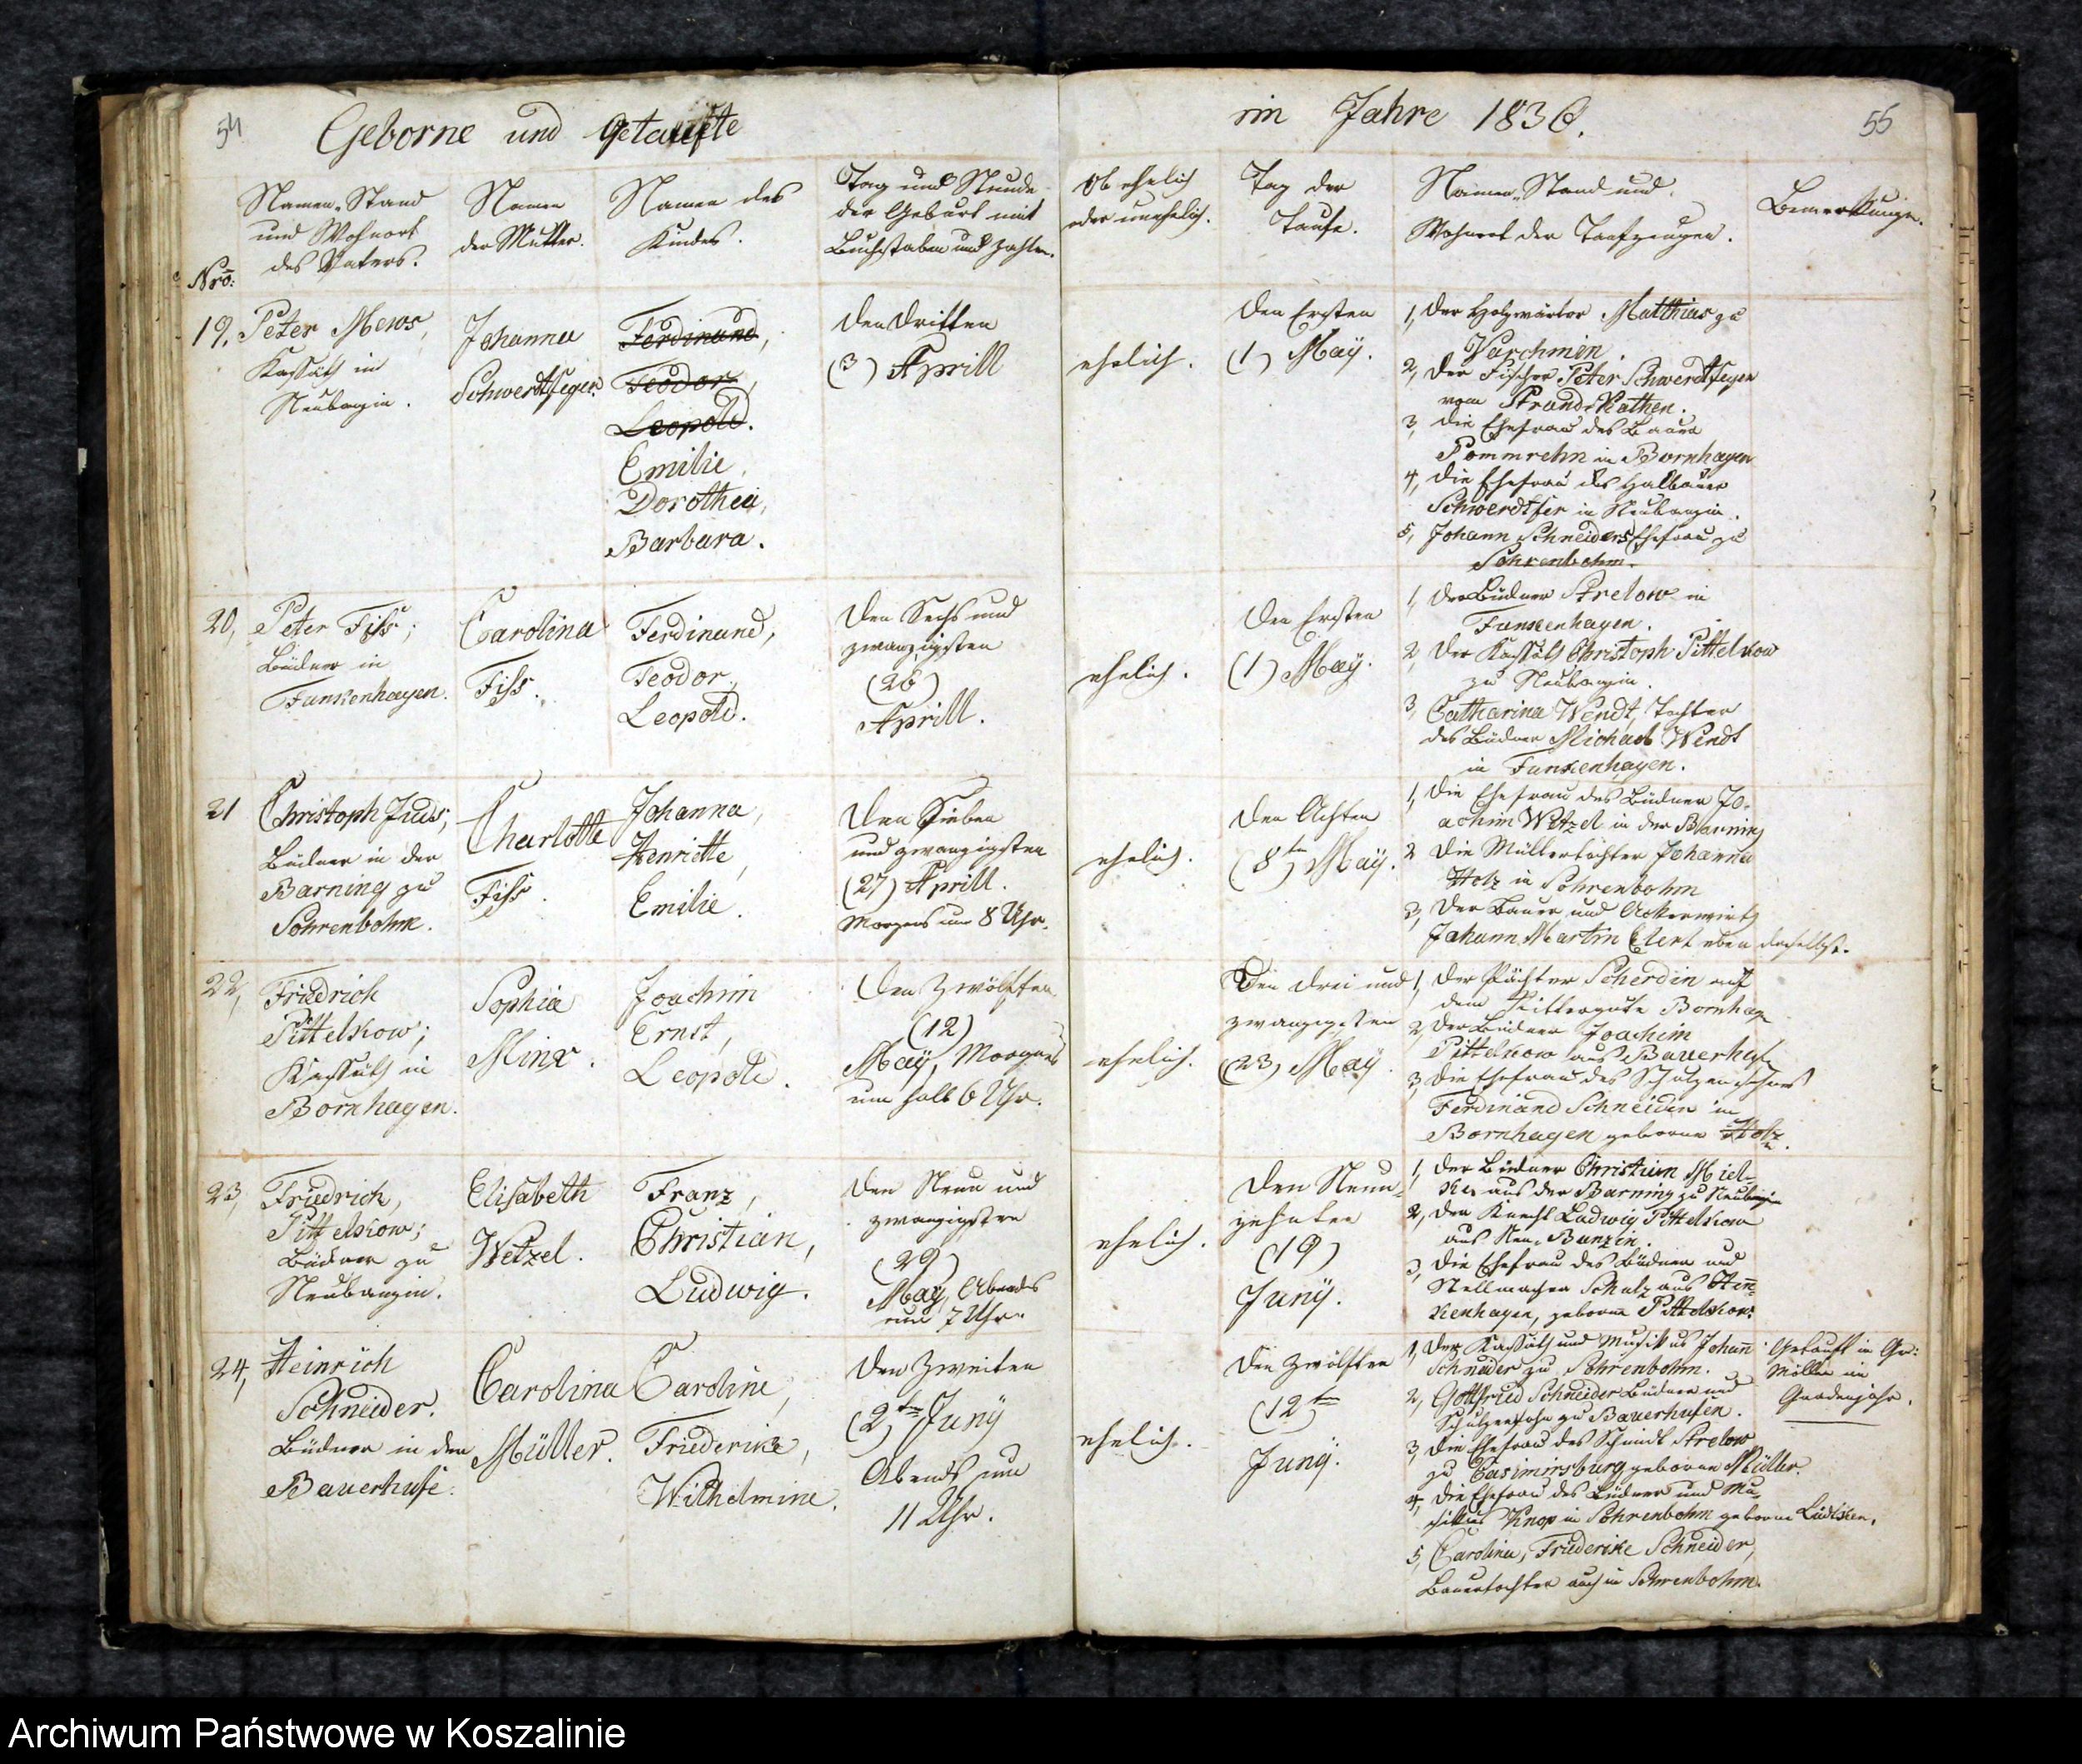 54
Geborne und Getaufte
Nro:
Namen, Stand
und Wohnort
des Vaters.
Namen
der Mutter.
Namen des
Kindes.
Tag und Stunde
der Geburt mit
Buchstaben und Zahlen.
19, Peter Mews,
Kossäth in
Neubanzin.
Johanna
Schwerdtfeger.
Ferdinand,
Teodor,
Leopold.
Emilie,
Dorothea,
Barbara.
den dritten
(3) Aprill
20, Peter Fiss;
Büdner in
Funkenhagen.
Carolina
Fiss.
Ferdinand,
Teodor,
Leopold.
den Sechs und
zwanzigsten
(26)
Aprill.
21 Christoph Juds;
Büdner in der
Barning zu
Sohrenbohm.
Charlotte
Fiss.
Johanna,
Henriette,
Emilie.
den Sieben
und zwanzigsten
(27) Aprill.
Morgens um 8 Uhr.
22, Friedrich
Pittelkow;
Kossäth in
Bornhagen.
Sophia
Minx.
Joachim
Ernst,
Leopold.
den Zwölften
(12)
May, Morgens
um halb 6 Uhr.
23, Friedrich,
Pittelkow;
Büdner zu
Neubanzin.
Elisabeth
Wetzel.
Franz,
Christian,
Ludwig.
den Neun und
zwanzigsten
(29)
May, Abends
um 7 Uhr.
24, Heinrich
Schneider.
Büdner in den
Bauerhufe.
Carolina
Müller.
Caroline,
Friederike,
Wilhelmine.
den Zweiten
(2)ten Juny
Abends um
11 Uhr.
im Jahre 1836.
55
Ob ehelich
oder unehelich.
Tag der
Taufe.
Namen, Stand und
Wohnort der Taufzeugen.
Bemerkungen.
ehelich.
den Ersten
(1) May.
1, der Holzwärter Matthias zu
Varchmin.
2, der Fischer Peter Schwerdtfeger
vom Strand-Kathen.
3, die Ehefrau des Bauer
Pommrehn in Bornhagen
4, die Ehefrau des Halbbauer
Schwerdtfer in Neubanzin.
5, Johann Schneiders Ehefrau zu
Sohrenbohm.
ehelich.
den Ersten
(1) May.
1, der Büdner Strelow in
Funkenhagen.
2, der Kossäth Christoph Pittelkow
zu Neubanzin.
3, Catharina Wendt, Tochter
des Büdner Michael Wendt
in Funkenhagen.
ehelich.
den Achten
(8ten) May.
1, die Ehefrau des Büdner Jo-
achim Wetzel in der Barning
2 die Müllertochter Johanna
Holz in Sohrenbohm
3, der Bauer und Ackerwirth
Johann Martin Elert eben daselbst.
ehelich.
den drei und
zwanzigsten
(23) May.
1, der Pächter Scherdin auf
dem Rittergute Bornhagen
2, der Büdner Joachim
Pittelkow aus Bauerhufe
3, die Ehefrau des Schulzen
Ferdinand Schneider in
Bornhagen geborne Holz.
ehelich.
den Neun-
zehnten
(19)
Juny.
1, der Büdner Christian Miel-
ke aus der Barning zu Neubanzin
2, der Knecht Ludwig Pittelkow
aus Neu-Banzin.
3, die Ehefrau des Büdner und
Stellmacher Schulz aus Hen-
kenhagen, geborne Pittelkow.
ehelich.
den Zwölften
(12)ten
Juny.
1, der Kossäth und Musikus Johann
Schneider zu Sohrenbohm.
2, Gottfried Schneider Büdner und
Schulzensohn zu Bauerhufen.
3, die Ehefrau des Schmidt Strelow
zu Casimirsburg geborne Müller.
4, die Ehefrau des Büdner und Mu-
sikus Knop in Sohrenbohm geborne Lüdtken.
5, Carolina, Friederike Schneider,
Bauertochter auch in Sohrenbohm.
Getauft in Gr:
Möllen im
Gnadenjahr.
Archiwum Państwowe w Koszalinie